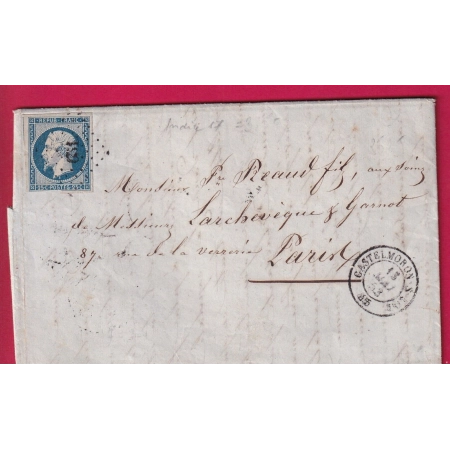 REPUB. FRANC.
25c POSTES 25c
Monsieur Pre Reaud fils, aux soins
de Messieurs Larchevèque & Garnot
87 rue de la verrerie
Paris
CASTELMORON
15
MAI
53